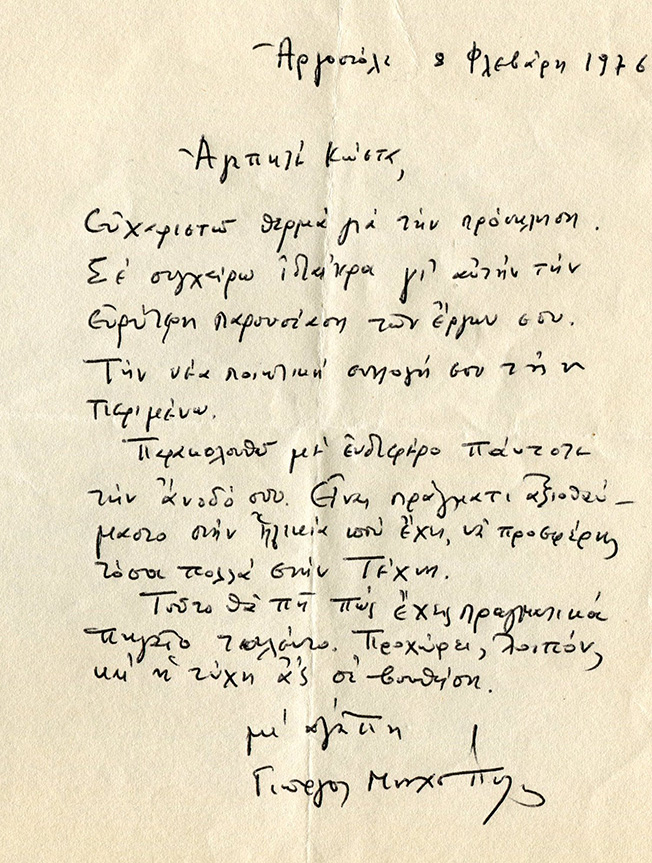 Ἀργοστόλι 8 Φλεβάρη 1976
Ἀγαπητέ Κώστα,
Εὐχαριστῶ θερμά γιά τήν πρόσκληση.
Σέ συγχαίρω ἰδιαίτερα γι' αὐτήν τήν
εὐρύτερη παρουσίαση τῶν ἔργων σου.
Τήν νέα ποιητική συλλογή σου τήν
περιμένω.
Παρακολουθῶ μέ ἐνδιαφέρο πάντοτε
τήν ἄνοδό σου. Εἶναι πράγματι ἀξιοθαύ-
μαστο στήν ἡλικία πού ἔχεις, νά προσφέρεις
τόσα πολλά στήν Τέχνη.
Τοῦτο θά πῆ πώς ἔχεις πραγματικά
πηγαῖο ταλέντο. Προχώρει, λοιπόν,
κι' ἡ τύχη ἄς σέ βοηθήση.
μέ ἀγάπη
Γιῶργος